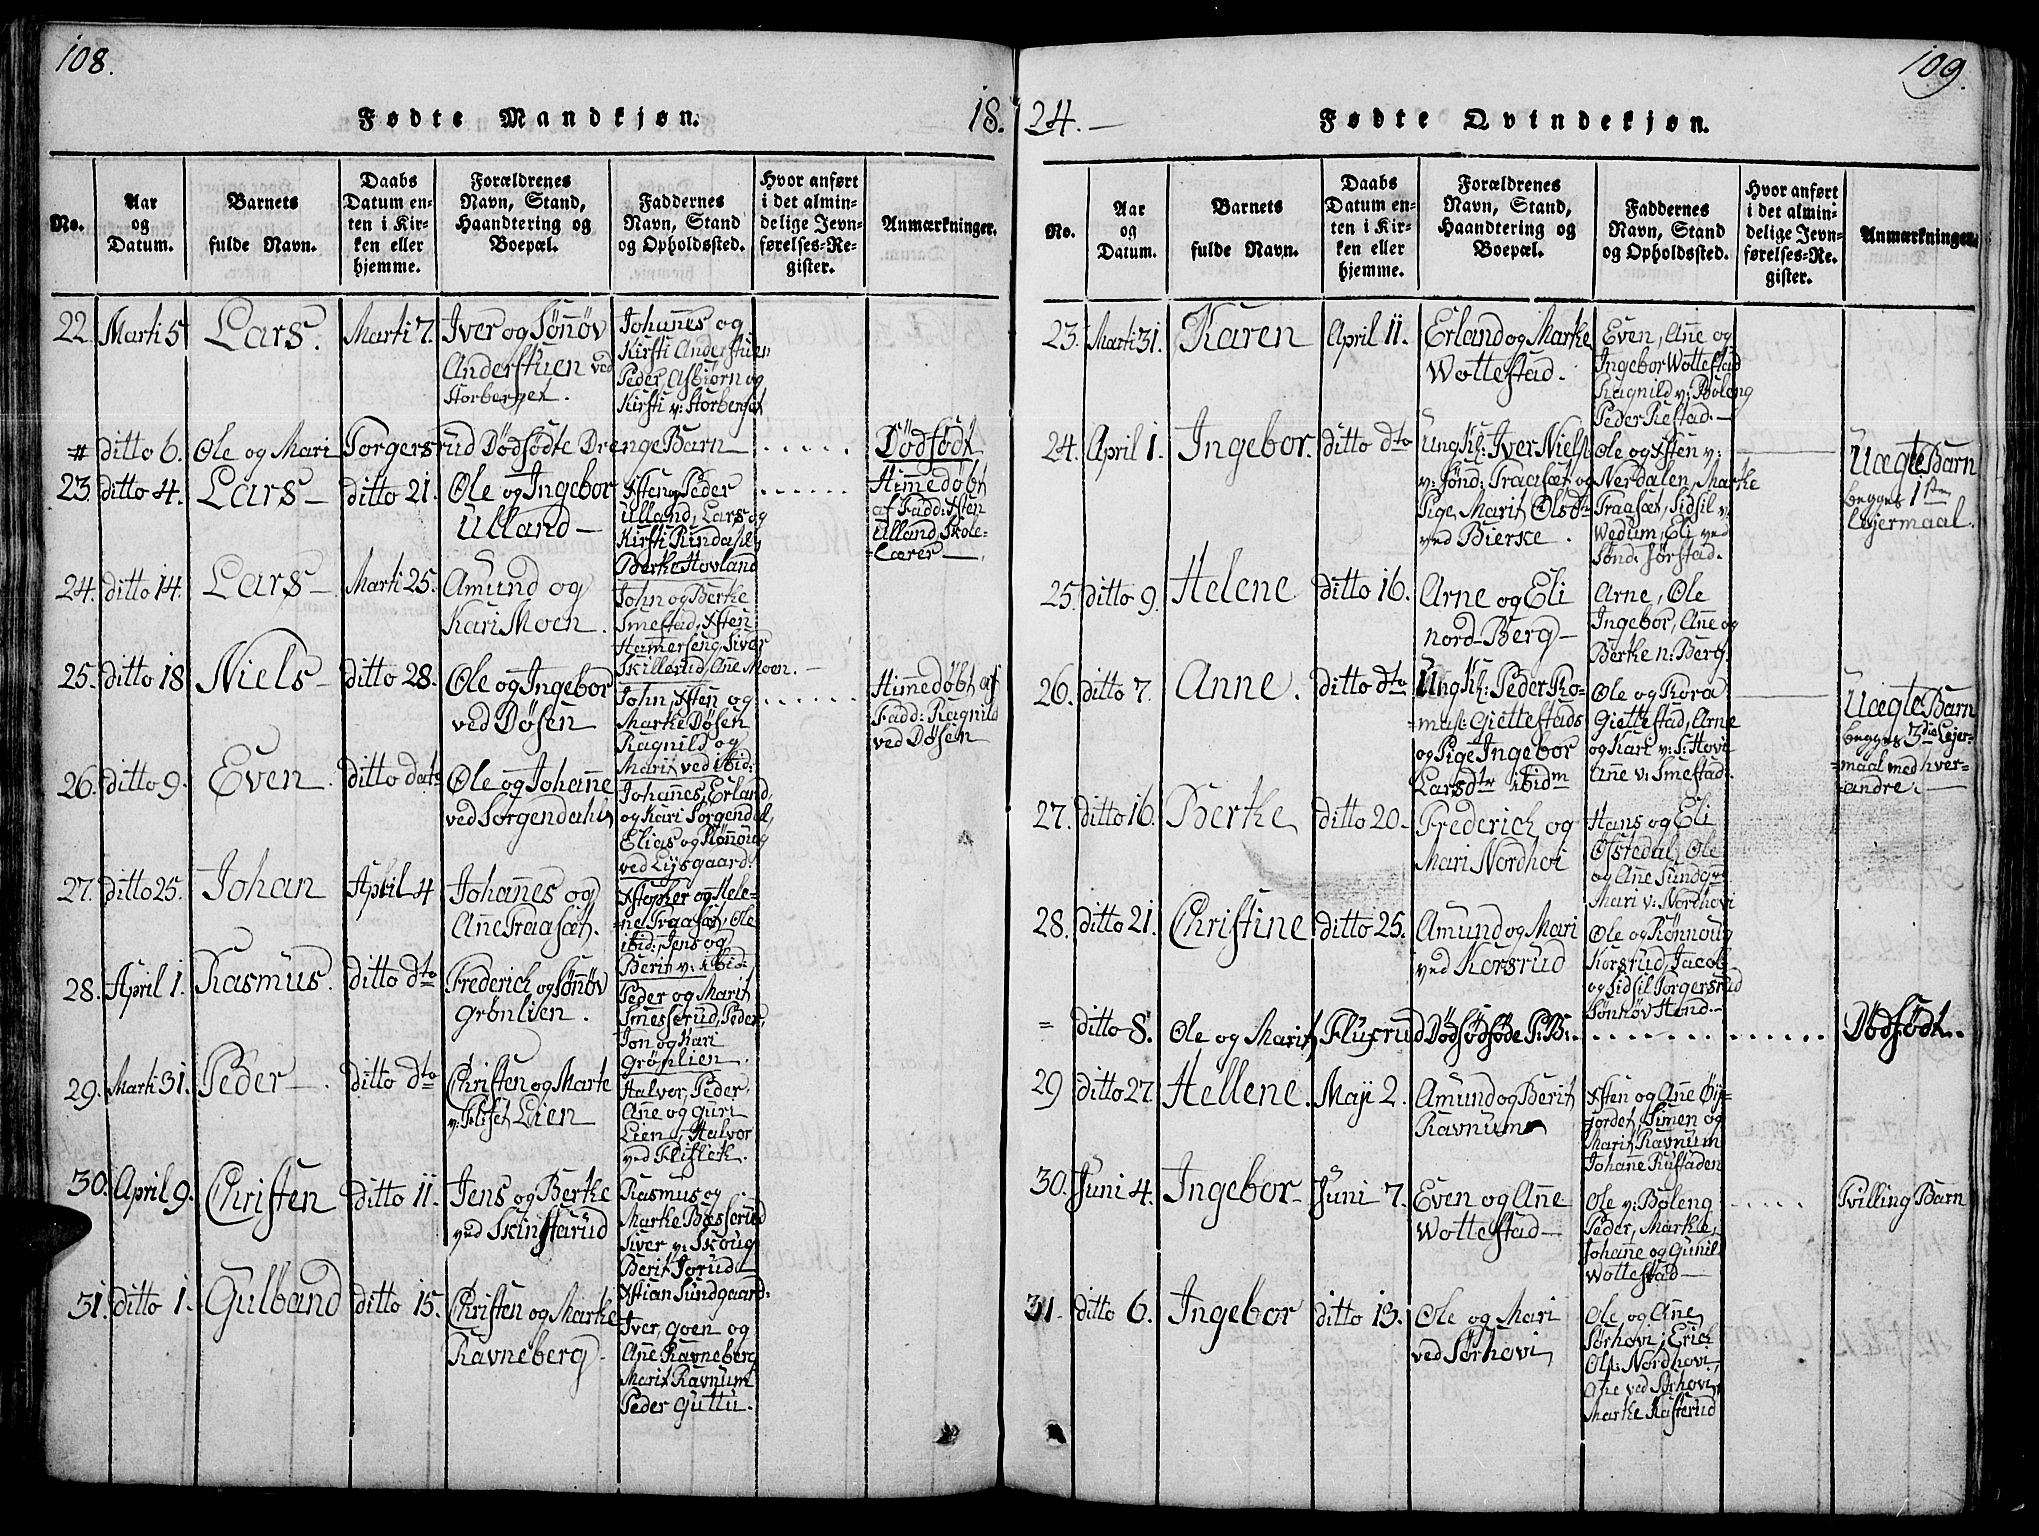 108.
Fødte Mandkjøn.
18.
No.
Aar
og
Datum.
Barnets
fulde Navn.
Daabs
Datum en-
ten i Kir-
ken eller
hjemme.
Forældrenes
Navn, Stand,
Haandtering og
Boepæl.
Faddernes
Navn, Stand
og Opholdssted.
Hvor anført
i det almin-
delige Jevn-
førelses-Re-
gister.
Anmærkninger.
22. Marti 5
Lars.
Marti 7.
Iver og Sønnøv
Anderstuen ved
Storberget.
Johannes og
Kirsti Anderstuen
Peder, Asbiørn og
Kirsti v: Storberget
# ditto 6. Ole og Mari Torgersrud Dødfødte Drenge Barn
Dødfødt
23. ditto 4.
Lars
ditto 21.
Ole og Ingebor
Ulland
Xsten og Peder
Ulland, Lars og
Kirsti Rindahl,
Berthe Hovland
Himedøbt
af Fadd: Xsten
Ulland, Skole-
-Lærer
24. ditto 14.
Lars
Marti 25.
Amund og
Kari Moen.
John og Berthe
Smestad, Xsten
Hamerseng, Siver
Skillerud, Ane Moen.
25. ditto 18
Niels
ditto 28.
Ole og Ingebor
ved Døsen
John, Xsten og
Marthe Døsen
Ragnild og
Marit ved ibid:
Himedøbt af
Fadd: Ragnild
ved Døsen
26. ditto 9.
Even.
ditto dato
Ole og Johanne
ved Sorgendahl
Johannes, Erland,
og Kari Sorgendal,
Elias og Rønnoug
ved Lysgaard.
27. ditto 25.
Johan
April 4
Johannes og
Ane Traasæt.
Xstopher og Hele-
-ne Traasæt, Ole
ibid: Jens og
Berit v: ibid:
28. April 1.
Rasmus.
ditto dto
Frederich og Sønnøv
Grønlien.
Peder og Marit
Smesserud, Peder,
Jon og Kari
Grønlien.
29. Marti 31.
Peder
ditto dto
Christen og Marte
v: Fliset Lien
Halvor, Peder,
Ane og Guri
Lien, Halvor
ved Flisleth.
30. April 9.
Christen
ditto 11.
Jens og Berthe
ved Skinstarud
Rasmus og
Marthe Bæsserud
Siver v: Skoug
Berit Jorud
31. ditto 1.
Gulband
ditto 15.
Christen og Marthe
Ravneberg
Xstian Sundgaard:
Iver, Goen og
Ane Ravneberg
Marit Ravnum
Peder Guttu.
109.
24.
Fødte Qvindekjøn.
No.
Aar
og
Datum.
Barnets
fulde Navn.
Daabs
Datum en-
ten i Kir-
ken eller
hjemme.
Forældrenes
Navn, Stand,
Haandtering og
Boepæl.
Faddernes
Navn, Stand
og Opholdssted.
Hvor anført
i det almin-
delige Jevn-
førelses-Re-
gister.
Anmærkninger.
23. Marti 31.
Karen
April 11.
Erland og Marthe
Wottestad.
Even, Ane og
Ingebor Wottestad
Ragnild v: Boleng
Peder Restad.
24. April 1.
Ingebor.
ditto dto
Ung Kl: Iver Niels:
v: Sønd: Traasæt og
Pige, Marit Olsdtr
ved Bierke.
Ole og Xsten v:
Nerdalen, Marthe
Traasæt, Sidsil v:
Wedum, Eli ved
Sønd: Sørstad.
Uægte Barn
begges 1ste
Lejermaal.
25. ditto 9.
Helene
ditto 16.
Arne og Eli
nord-Berg
Arne, Ole
Ingebor, Ane og
Berthe n: Berg.
26. ditto 7.
Anne.
ditto dto
Ung Kl: Peder To-
-mas: Giettestads
og Pige Ingebor
Larsdtr ibidm
Ole og Tora
Giettestad, Arne
og Kari v: S: Hovi
Ane v: Smestad.
Uægte Barn
begges 3die Lejer-
-maal med hver-
-andre.
27. ditto 16.
Berthe
ditto 20.
Frederich og
Mari Nordhovi
Hans og Eli
Øfstedal, Ole
og Ane Sundgr.
Mari v: Nordhovi
28. ditto 21.
Christine
ditto 25.
Amund og Mari
ved Korsrud
Ole og Rønnoug
Korsrud, Jacob
og Sidsil Torgersrud
Sønnøv Hend.
= ditto 8. Ole og Marith Flugrud Dødfødsøde P: B:
Dødfødt.
29 ditto 27.
Hellene.
Maji 2.
Amund og Berit
Ravnum
Xsten og Ane Øy-
-jordet, Simen og
Marit Ravnum
Johane Rustaden
30. Juni 4.
Ingebor
Juni 7.
Even og Ane
Wottestad
Ole v: Boleng
Peder, Marthe,
Johane og Gunil
Wottestad
Tvilling Barn
31. ditto 6.
Ingebor
ditto 13.
Ole og Mari
ved Sørhovi
Ole og Ane
Sørhovi, Erich
Ols: Nordhovi,
Ane ved Sørhovi,
Marthe Kasterud